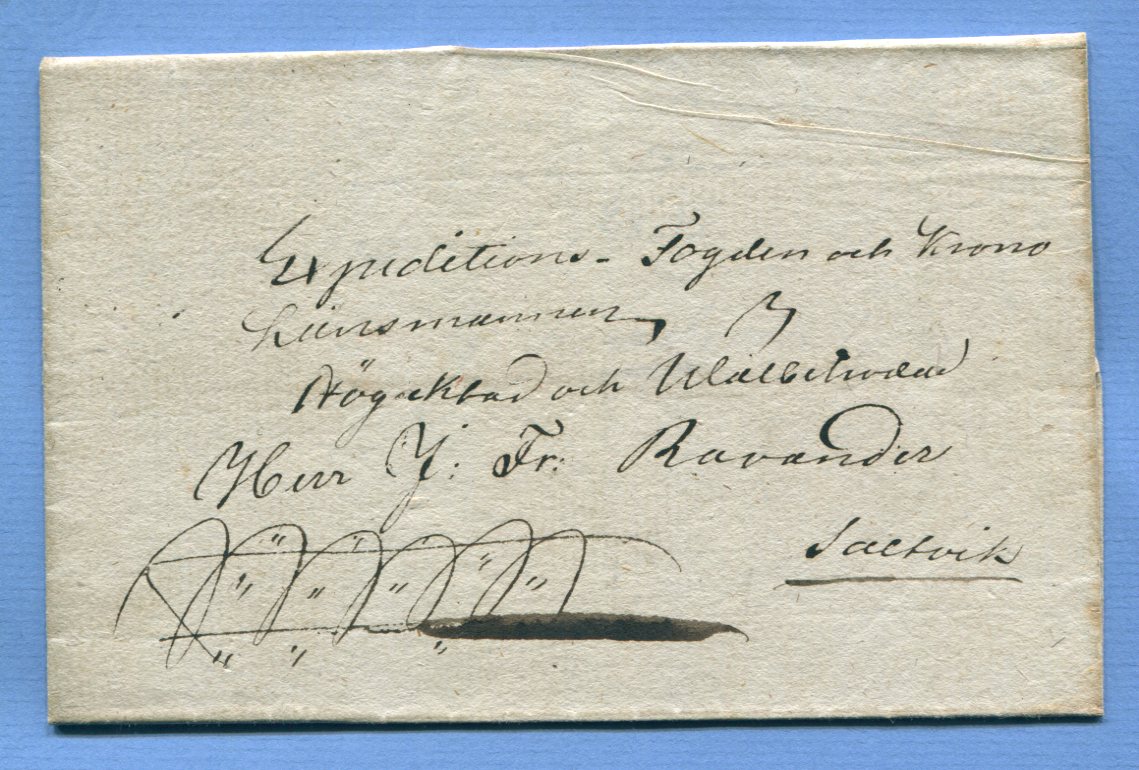 Expeditions-Fogden och Krono
Länsmannen
Högaktad och Wälbetrodd
Herr J: Fr: Ravander
Saltvik